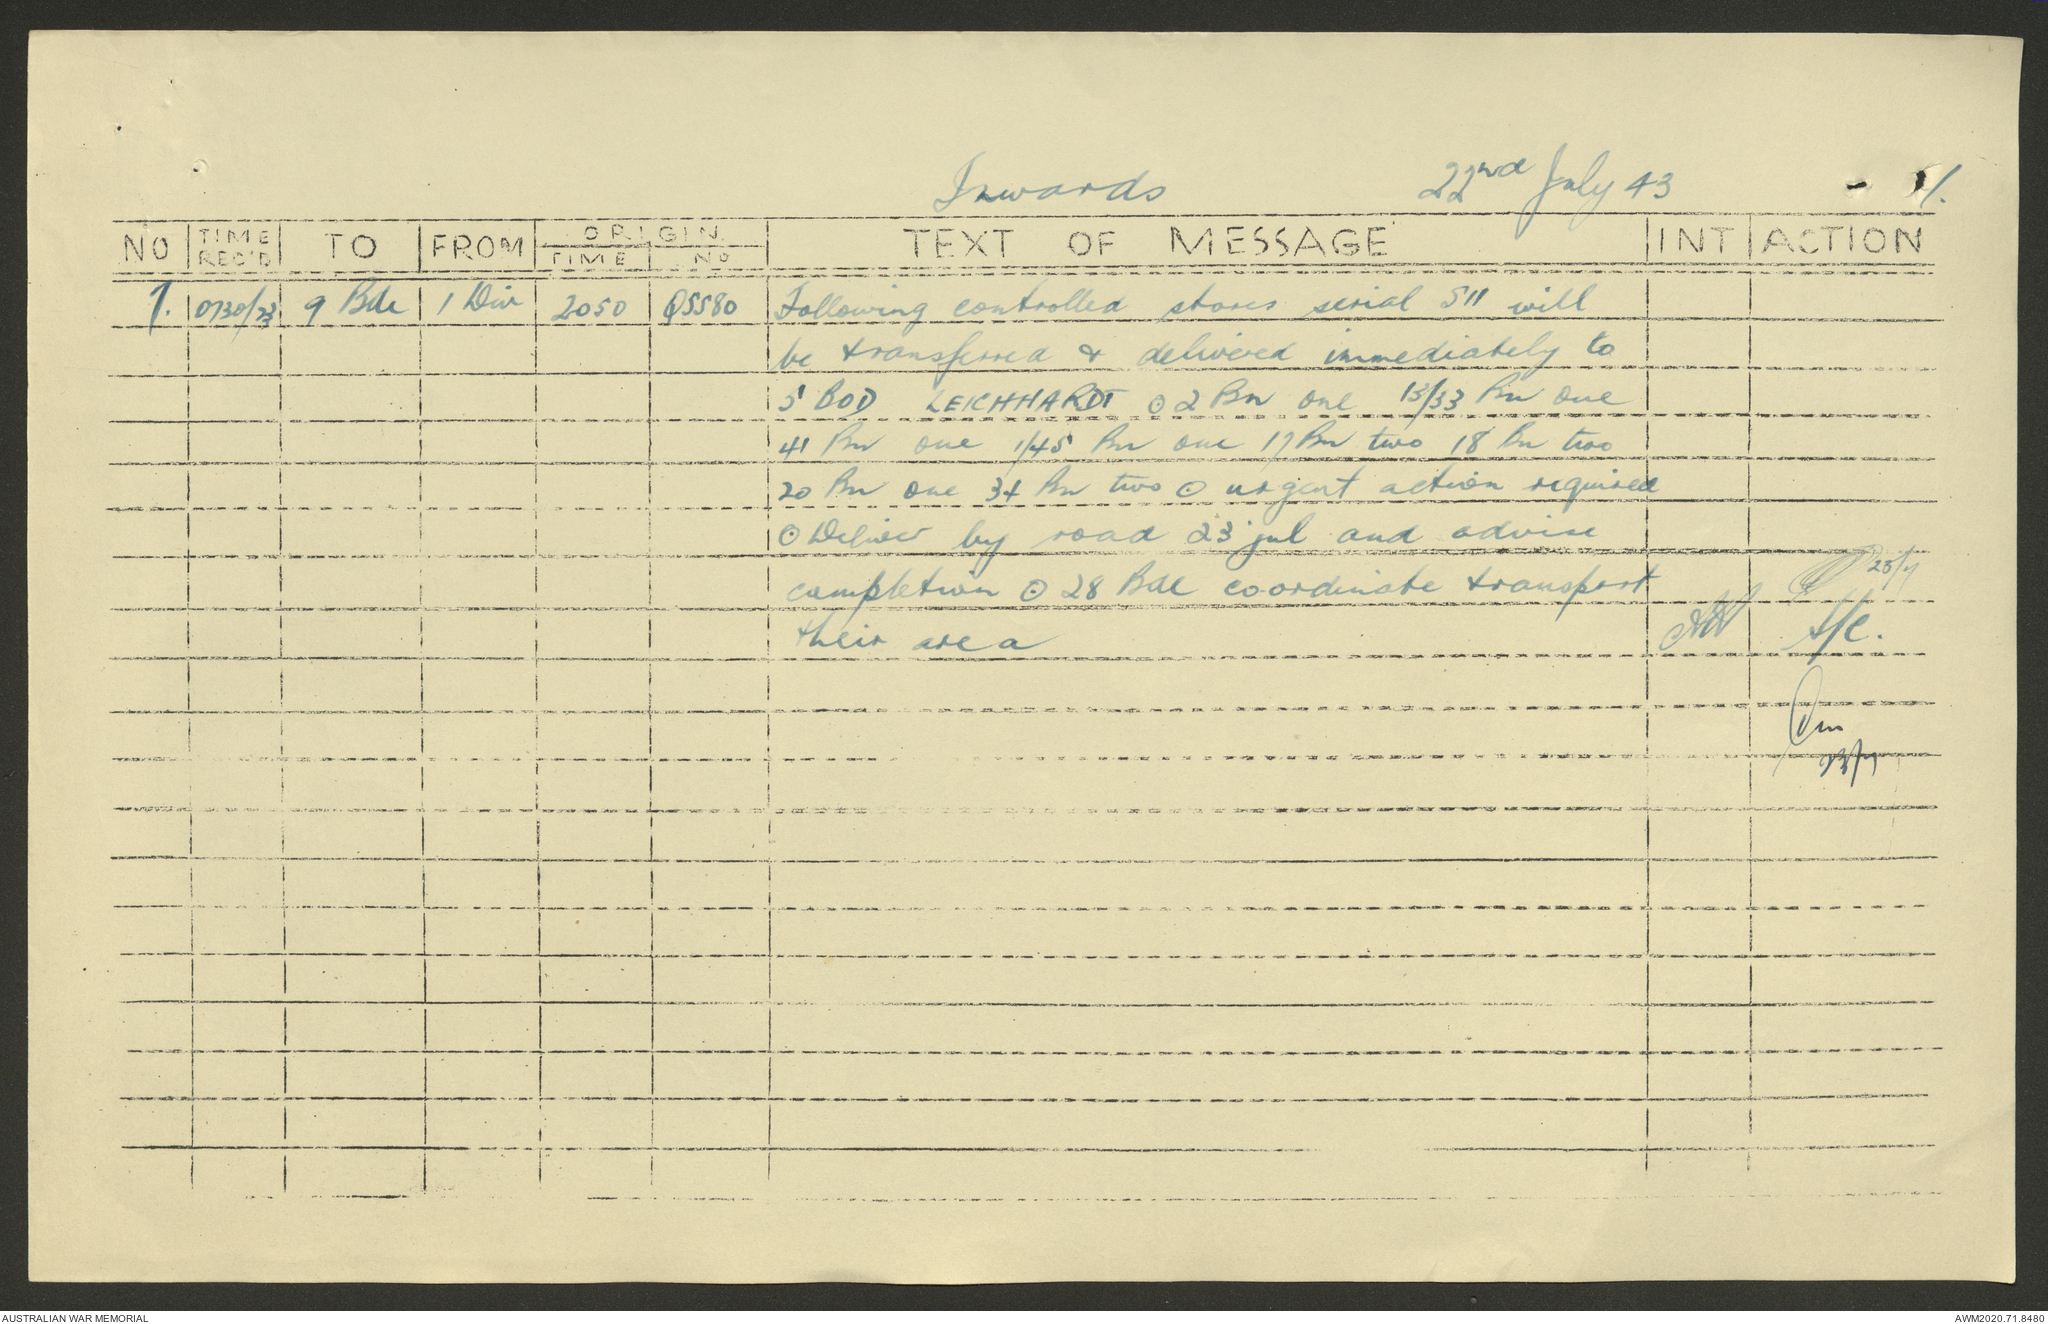 Inwards 22nd July 43 1.
NO TIME REC'D TO FROM ORIGIN TIME NO TEXT OF MESSAGE INT ACTION
1. 0730/23 9 Bde 1 Div 2050 QS580 Following controlled stores serial 511 will
be transferred & delivered immediately to
5 BOD LEICHHARDT ⊙ 2 Bn one 13/33 Bn one
41 Bn one 1/45 Bn one 17 Bn two 18 Bn two
20 Bn one 34 Bn two ⊙ urgent action required
⊙ Deliver by road 23 jul and advise
completion ⊙ 28 Bde coordinate transport 23/7
their area S/C.
23/7
AUSTRALIAN WAR MEMORIAL AWM2020.71.8480